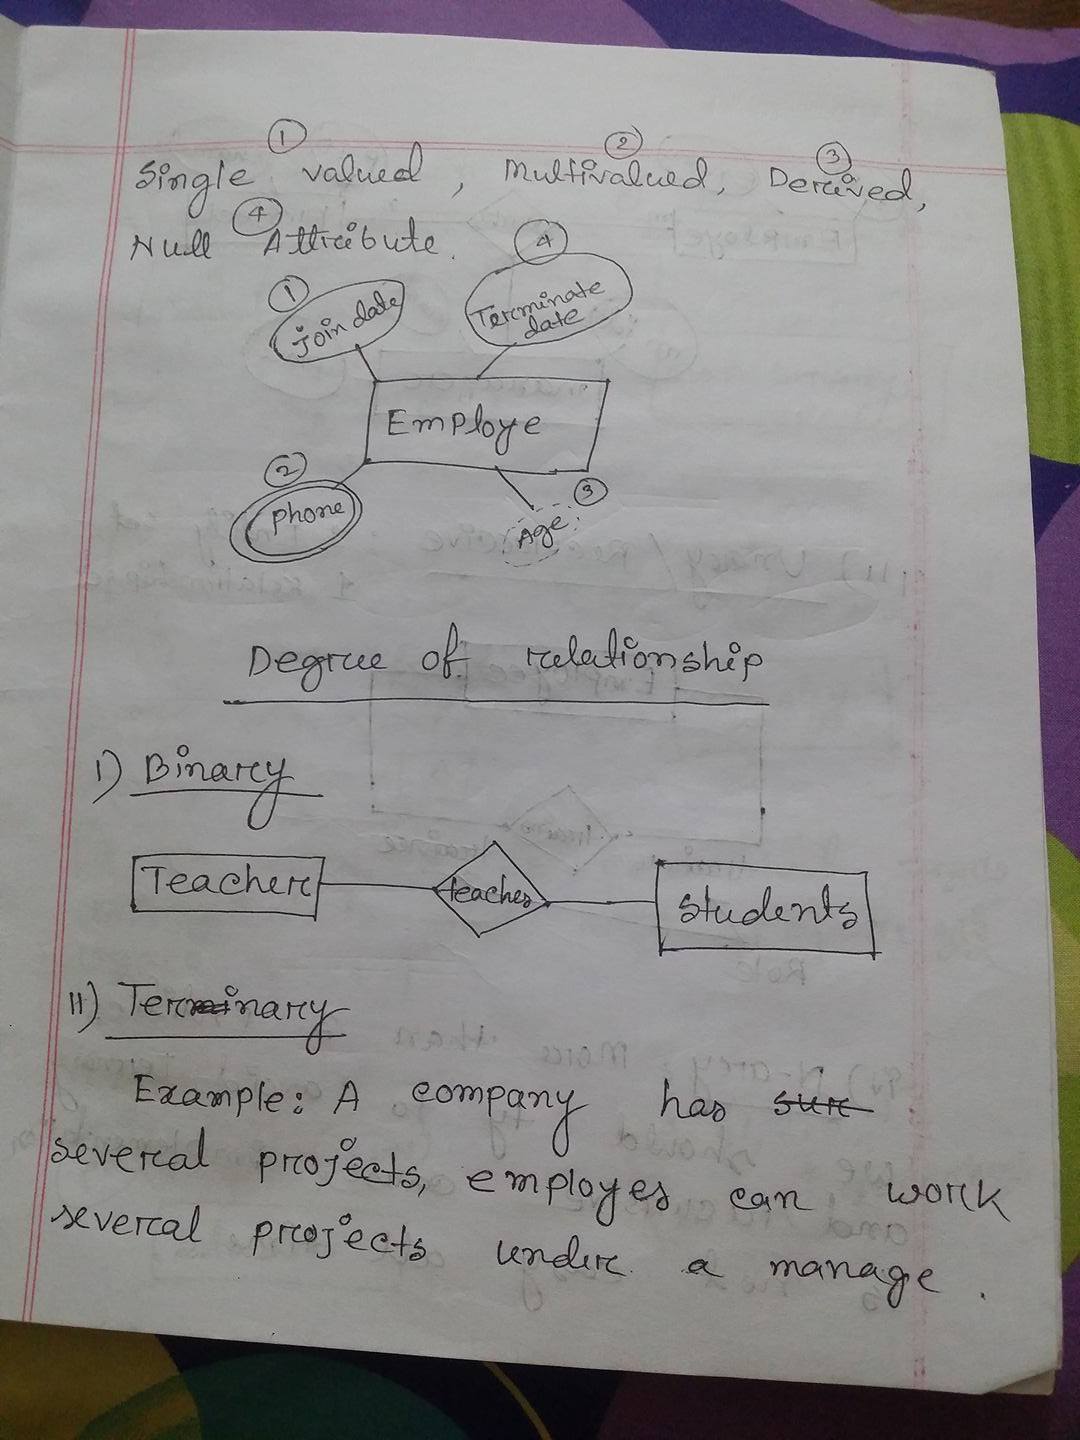 ①
②
③
Single valued, Multivalued, Derived,
④
Null Attribute.
①
Join date
④
Terminate
date
Employe
②
Phone
③
Age
Degree of relationship
I) Binary
Teacher
teaches
Students
II) Ternary
Example: A company has
several projects, employes can work
several projects under a manage.